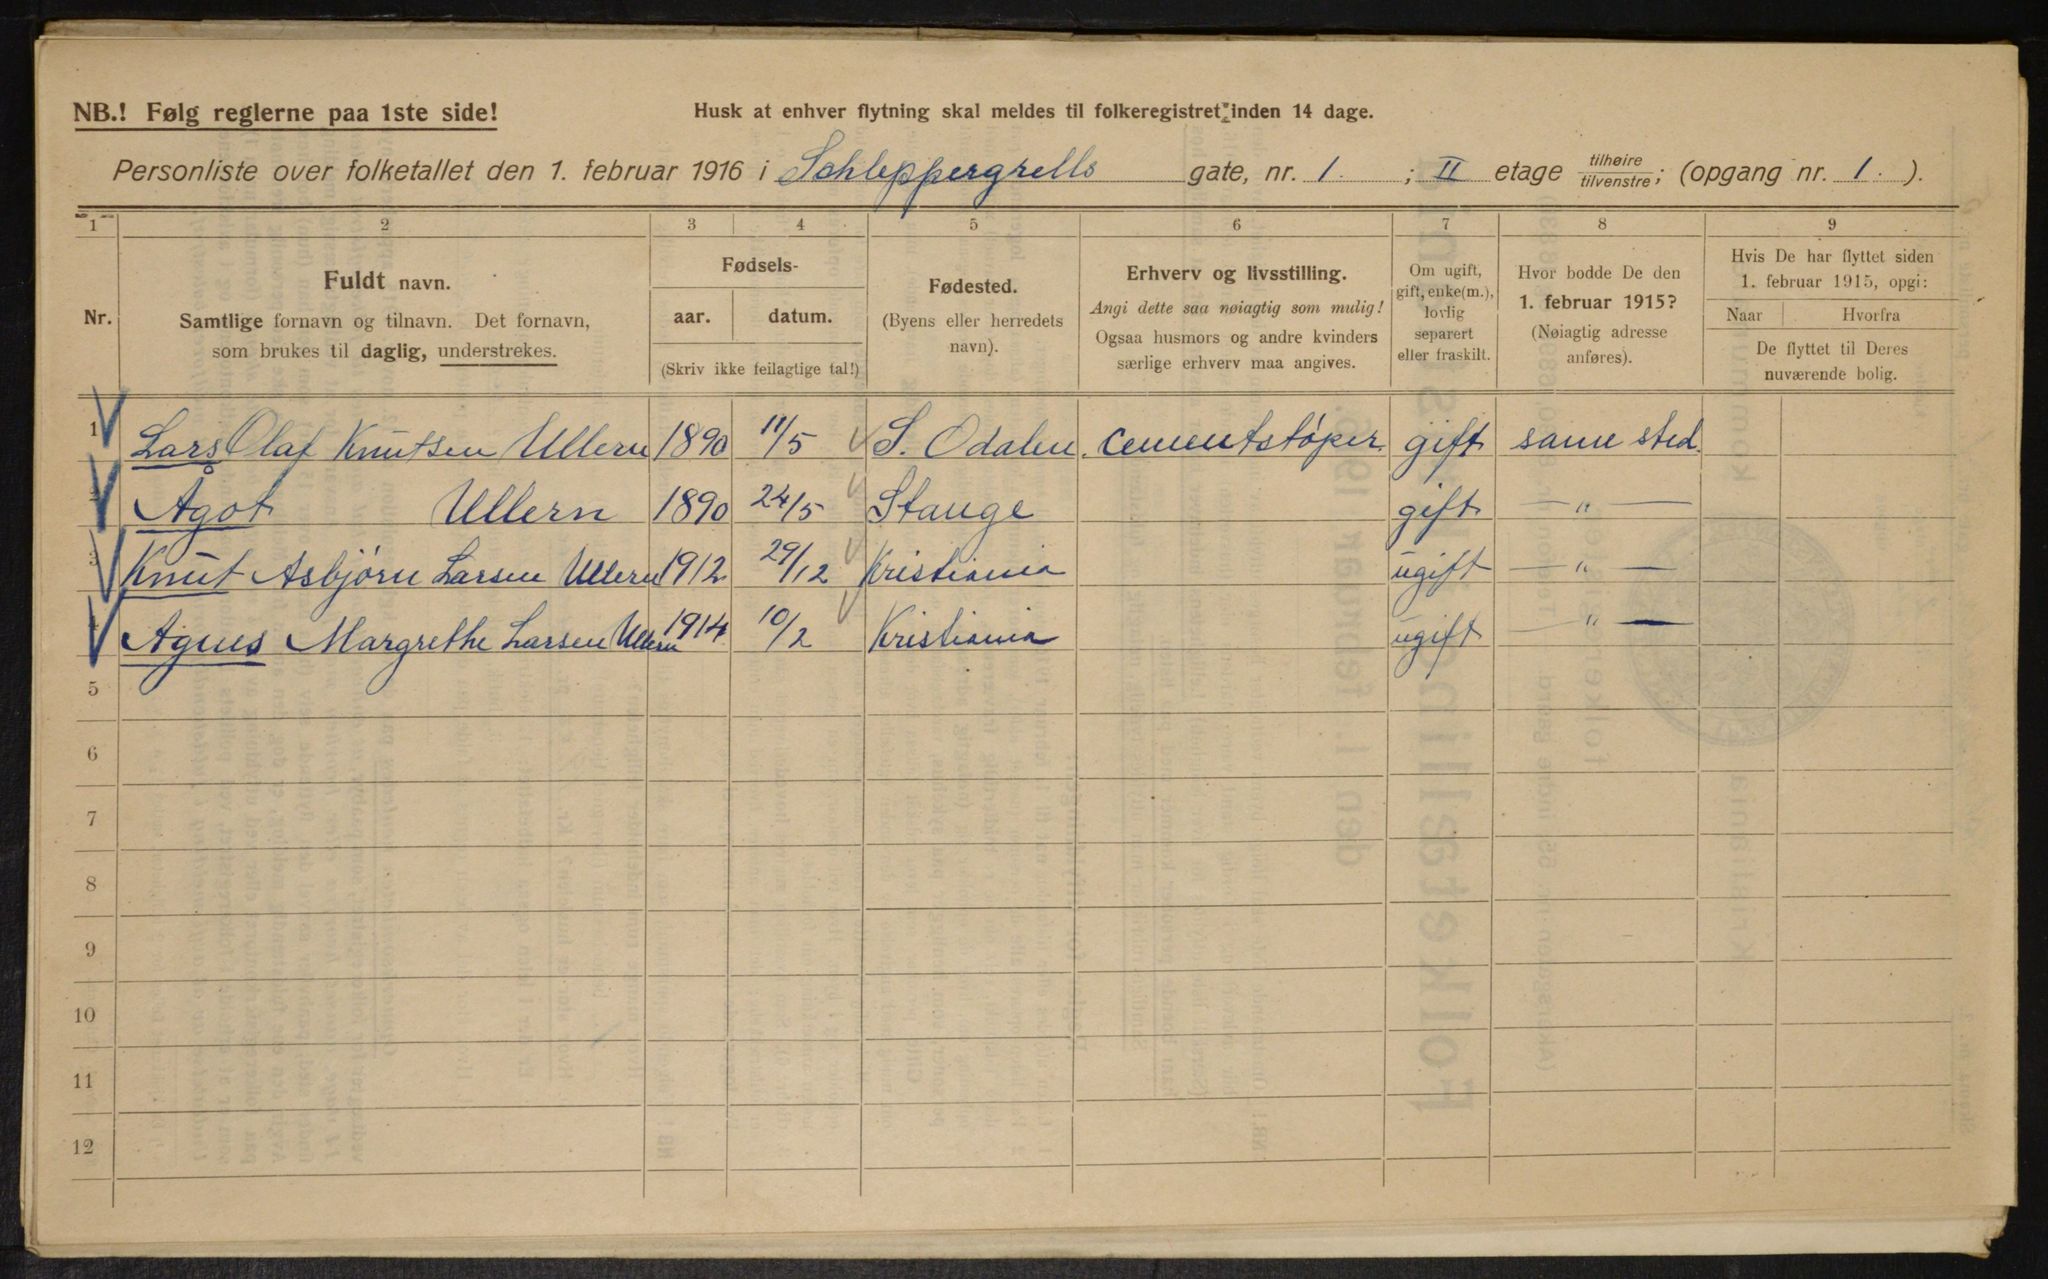 NB.! Følg reglerne paa 1ste side!
Husk at enhver flytning skal meldes til folkeregistret inden 14 dage.
Personliste over folketallet den 1. februar 1916 i Schleppergrells gate, nr. 1. ; II etage tilhøire/tilvenstre; (opgang nr. 1. ).
1 2 3 4 5 6 7 8 9
Nr.
Fuldt navn.
Samtlige fornavn og tilnavn. Det fornavn,
som brukes til daglig, understrekes.
Fødsels-
aar. datum.
(Skriv ikke feilagtige tal!)
Fødested.
(Byens eller herredets
navn).
Erhverv og livsstilling.
Angi dette saa nøiagtig som mulig!
Ogsaa husmors og andre kvinders
særlige erhverv maa angives.
Om ugift,
gift, enke(m.),
lovlig
separert
eller fraskilt.
Hvor bodde De den
1. februar 1915?
(Nøiagtig adresse
anføres).
Hvis De har flyttet siden
1. februar 1915, opgi:
Naar Hvorfra
De flyttet til Deres
nuværende bolig.
1 Lars Olaf Knutsen Ullern 1890 11/5 S. Odalen. cementstøper. gift same sted.
2 Ågot Ullern 1890 24/5 Stange gift — " —
3 Knut Asbjørn Larsen Ullern 1912 29/12 Kristiania ugift — " —
4 Agnes Margrethe Larsen Ullern 1914 10/2 Kristiania ugift — " —
5
6
7
8
9
10
11
12